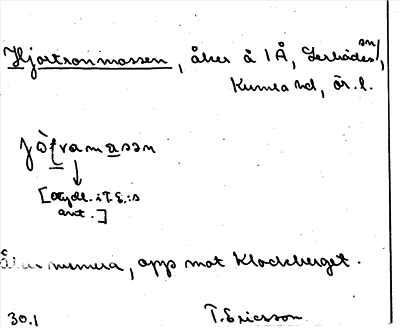 Hjortronmossen, åker å 1Å, Lerbäcks sn,
Kumla hd, Ör. l.
jòʈramasən
[otydl. i T.E.:s
ant.]
Åker numera, opp mot Klockberget.
30.1 T. Ericsson